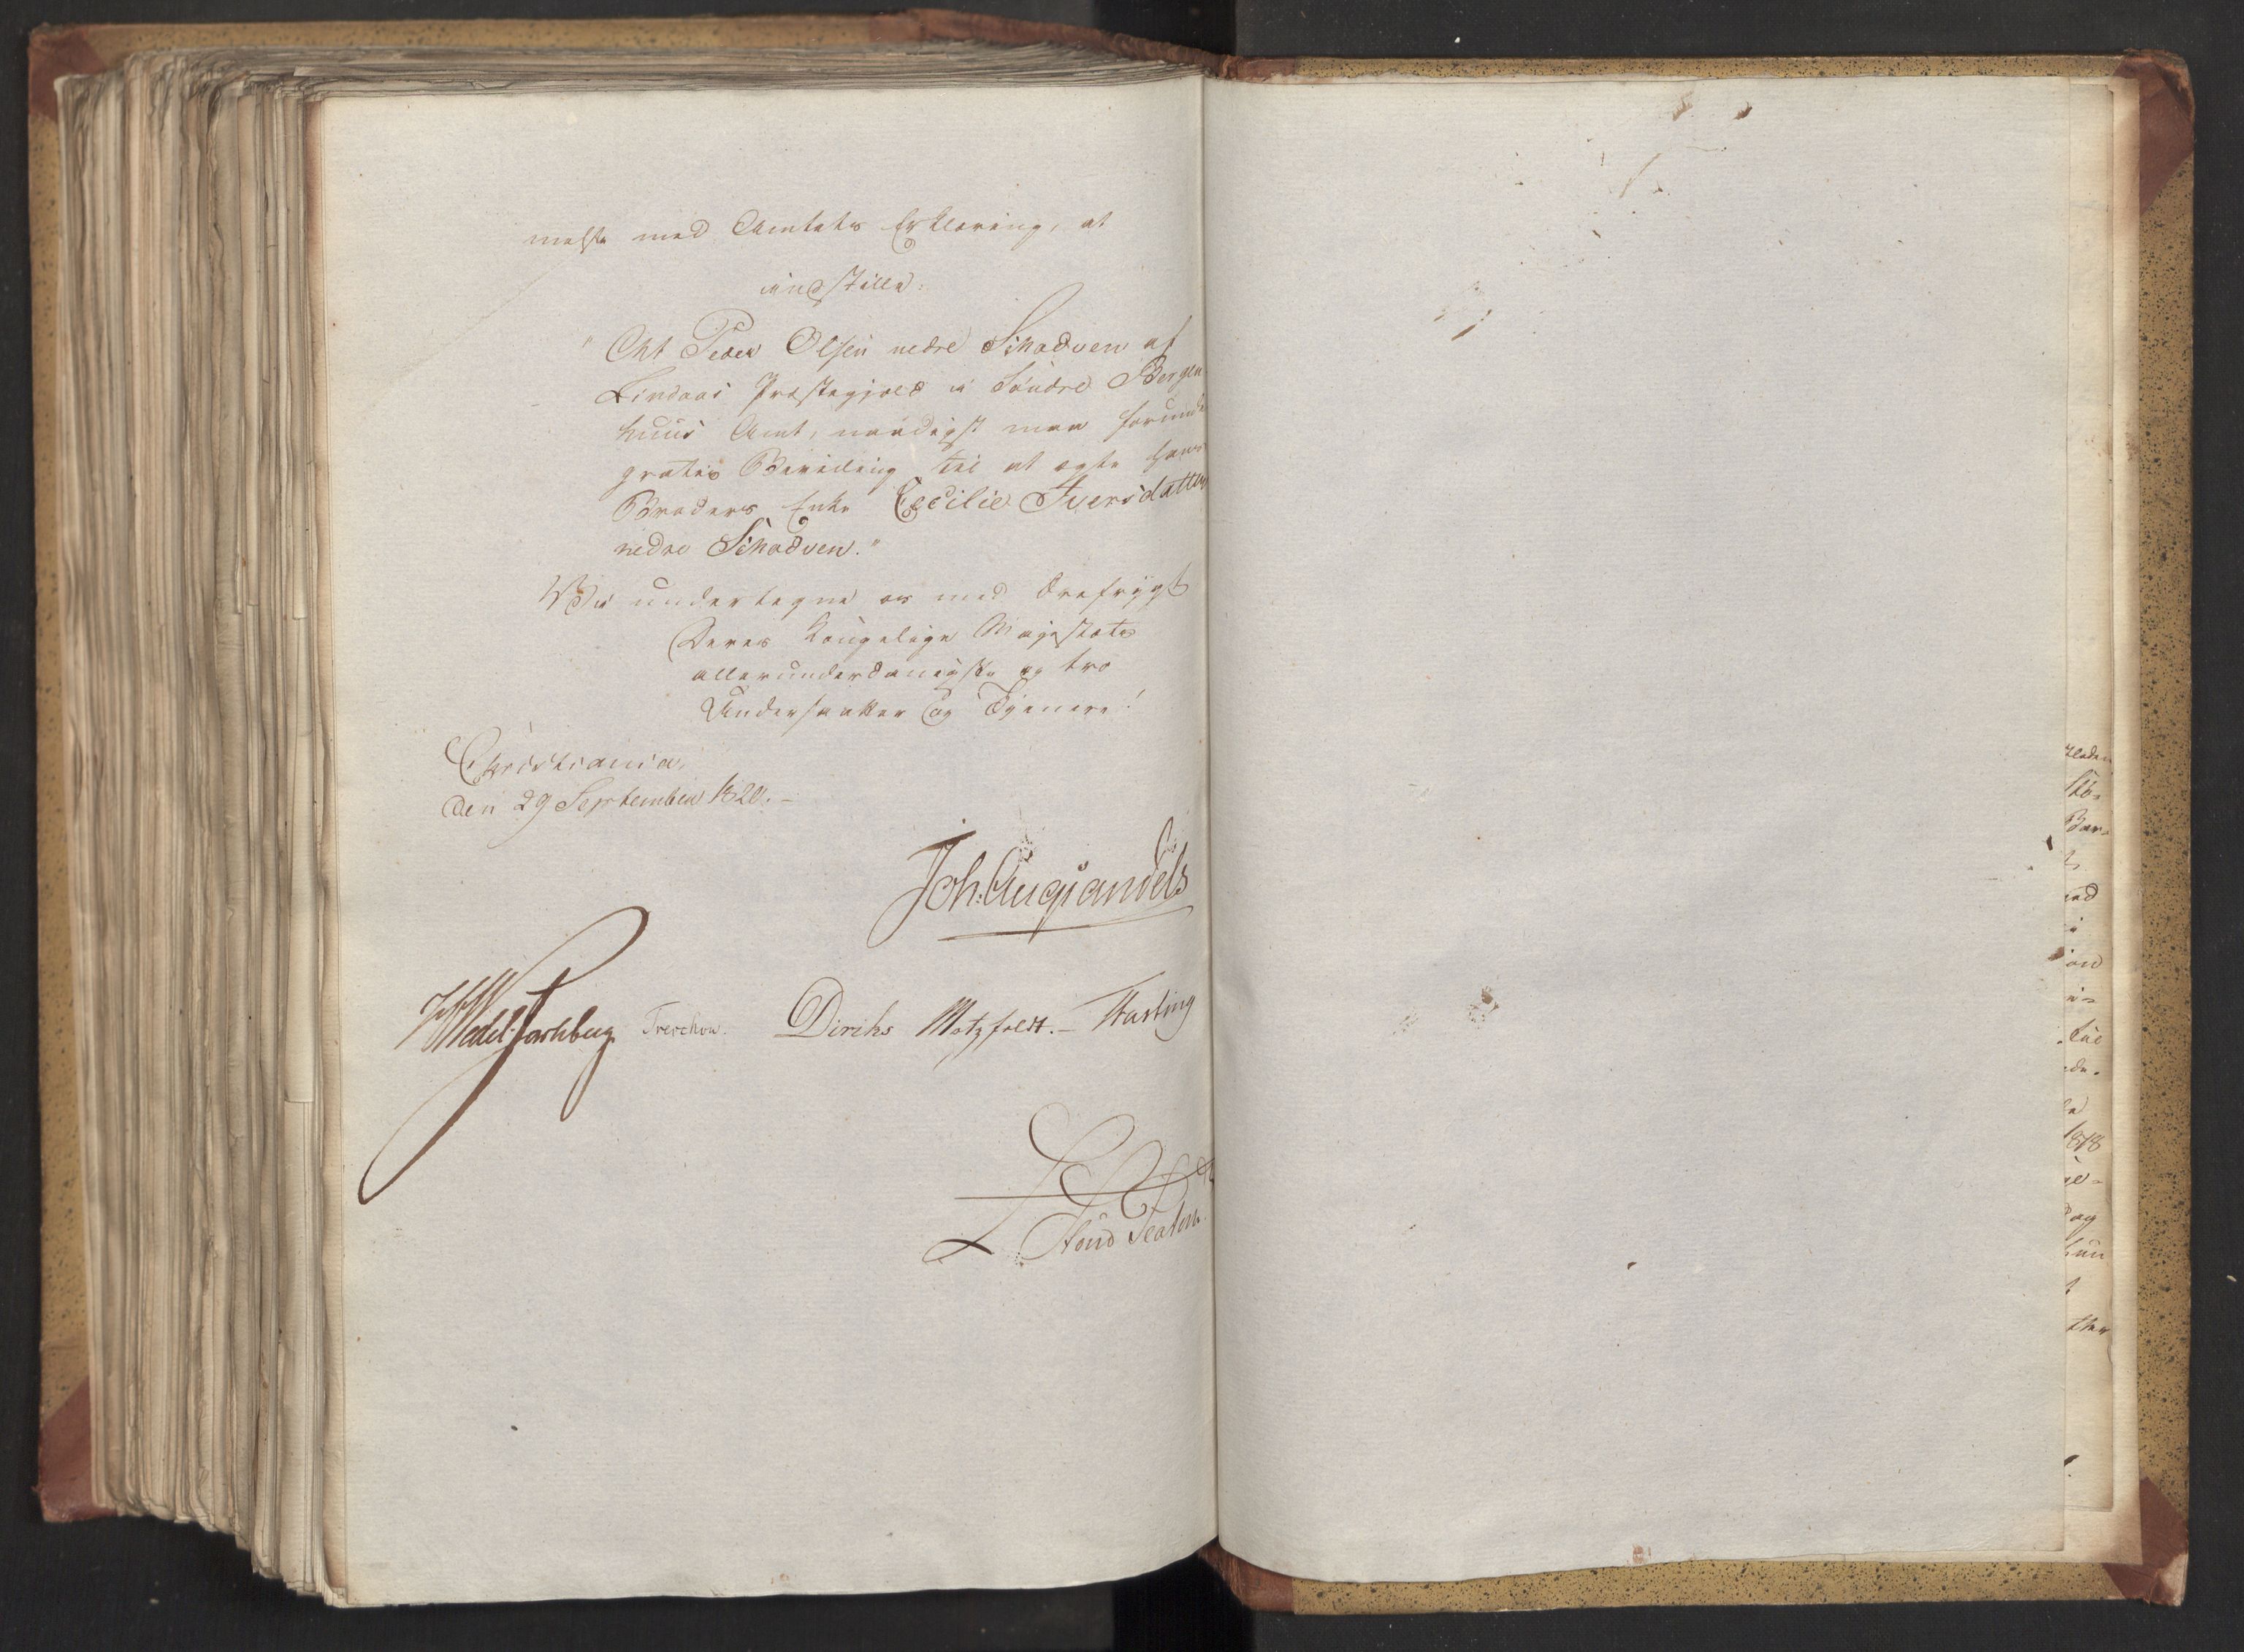 melse med Amtets Erklæring, at
indstille:
"At Peder Olsen nedre Schodven af
Lindaas Præstegjæld i Søndre Bergen
huus Amt, naadigst maa forunde
gratis Bevilling til at ægte hans
Broders Enke Cecilie Iversdatter
nedre Schodven."
Vi undertegne os med Ærefrygt
Deres Kongelige Majestæts
allerunderdanigste og tro
Undersaatter og Tjenere!
Christiania,
den 29 September 1820. –
Joh: Aug: Sandels
Wedel Jarlsberg Treschow. Diriks Motzfeldt. – Fasting
ned
1818
dag
hun